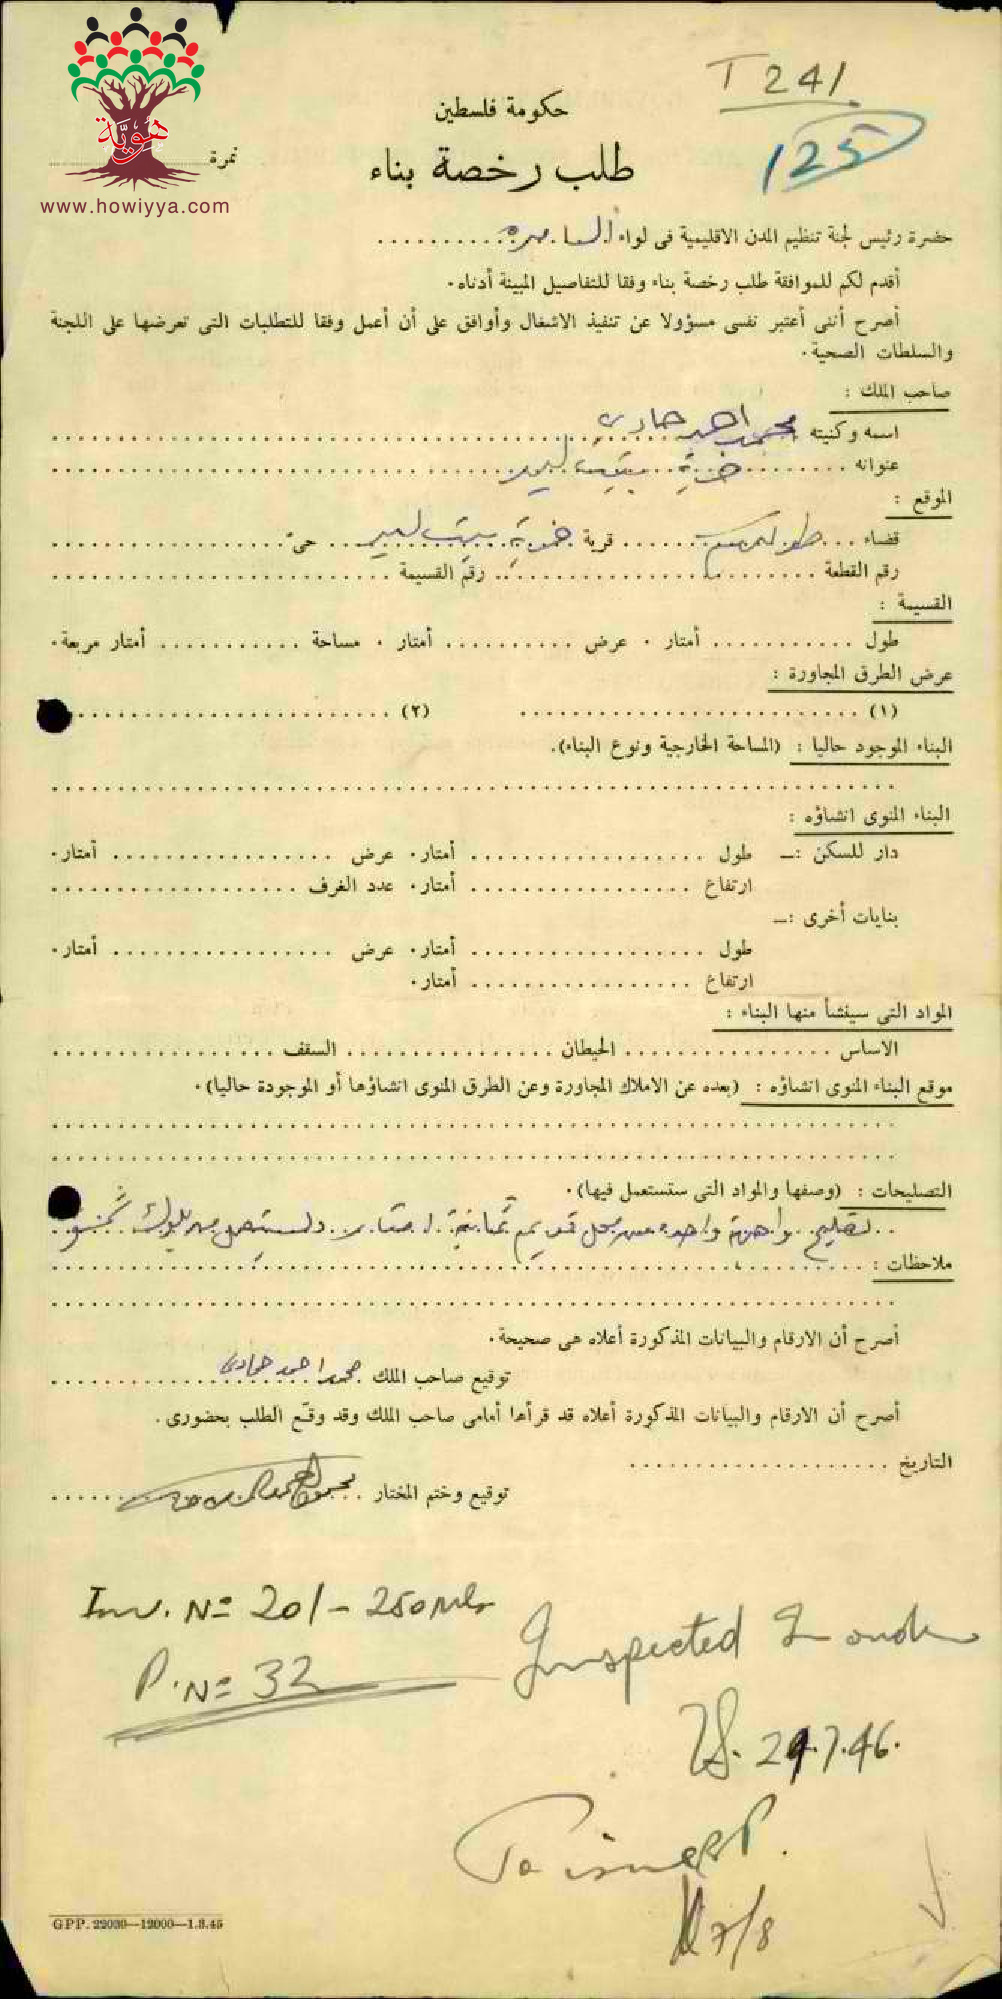 T 241
حكومة فلسطين
125
طلب رخصة بناء
نمرة
هُويّة
www.howiyya.com
حضرة رئيس لجنة تنظيم المدن الاقليمية فى لواء السامره
أقدم لكم للموافقة طلب رخصة بناء وفقا للتفاصيل المبينة أدناه.
أصرح أننى أعتبر نفسى مسؤولا عن تنفيذ الاشغال وأوافق على أن أعمل وفقا للمتطلبات التى تعرضها على اللجنة
والسلطات الصحية.
صاحب الملك :
اسمه وكنيته محمد احمد حمادى
عنوانه خربة بيت ليد
الموقع :
قضاء طولكرم قرية خربة بيت ليد حى
رقم القطعة رقم القسيمة
القسيمة :
طول أمتار . عرض أمتار . مساحة أمتار مربعة.
عرض الطرق المجاورة :
(١) (٢)
البناء الموجود حاليا : (المساحة الخارجية ونوع البناء).
البناء المنوى انشاؤه :
دار للسكن :ـ طول أمتار. عرض أمتار.
ارتفاع أمتار. عدد الغرف
بنايات أخرى :ـ
طول أمتار. عرض أمتار.
ارتفاع أمتار.
المواد التى سينشأ منها البناء :
الاساس الحيطان السقف
موقع البناء المنوى انشاؤه : (بعده عن الاملاك المجاورة وعن الطرق المنوى انشاؤها أو الموجودة حاليا).
التصليحات : (وصفها والمواد التى ستستعمل فيها).
لتصليح واجهة واحده من محل قديم ثمانية امتار
ملاحظات :
أصرح أن الارقام والبيانات المذكورة أعلاه هى صحيحة.
توقيع صاحب الملك محمد احمد حمادى
أصرح أن الارقام والبيانات المذكورة أعلاه قد قرأها أمامى صاحب الملك وقد وقّع الطلب بحضورى.
التاريخ
توقيع وختم المختار
Inv. No 201 - 250 mls
P. No 32
Inspected
29.7.46.
To issue P.
7/8
GPP. 22030—12000—1.8.45